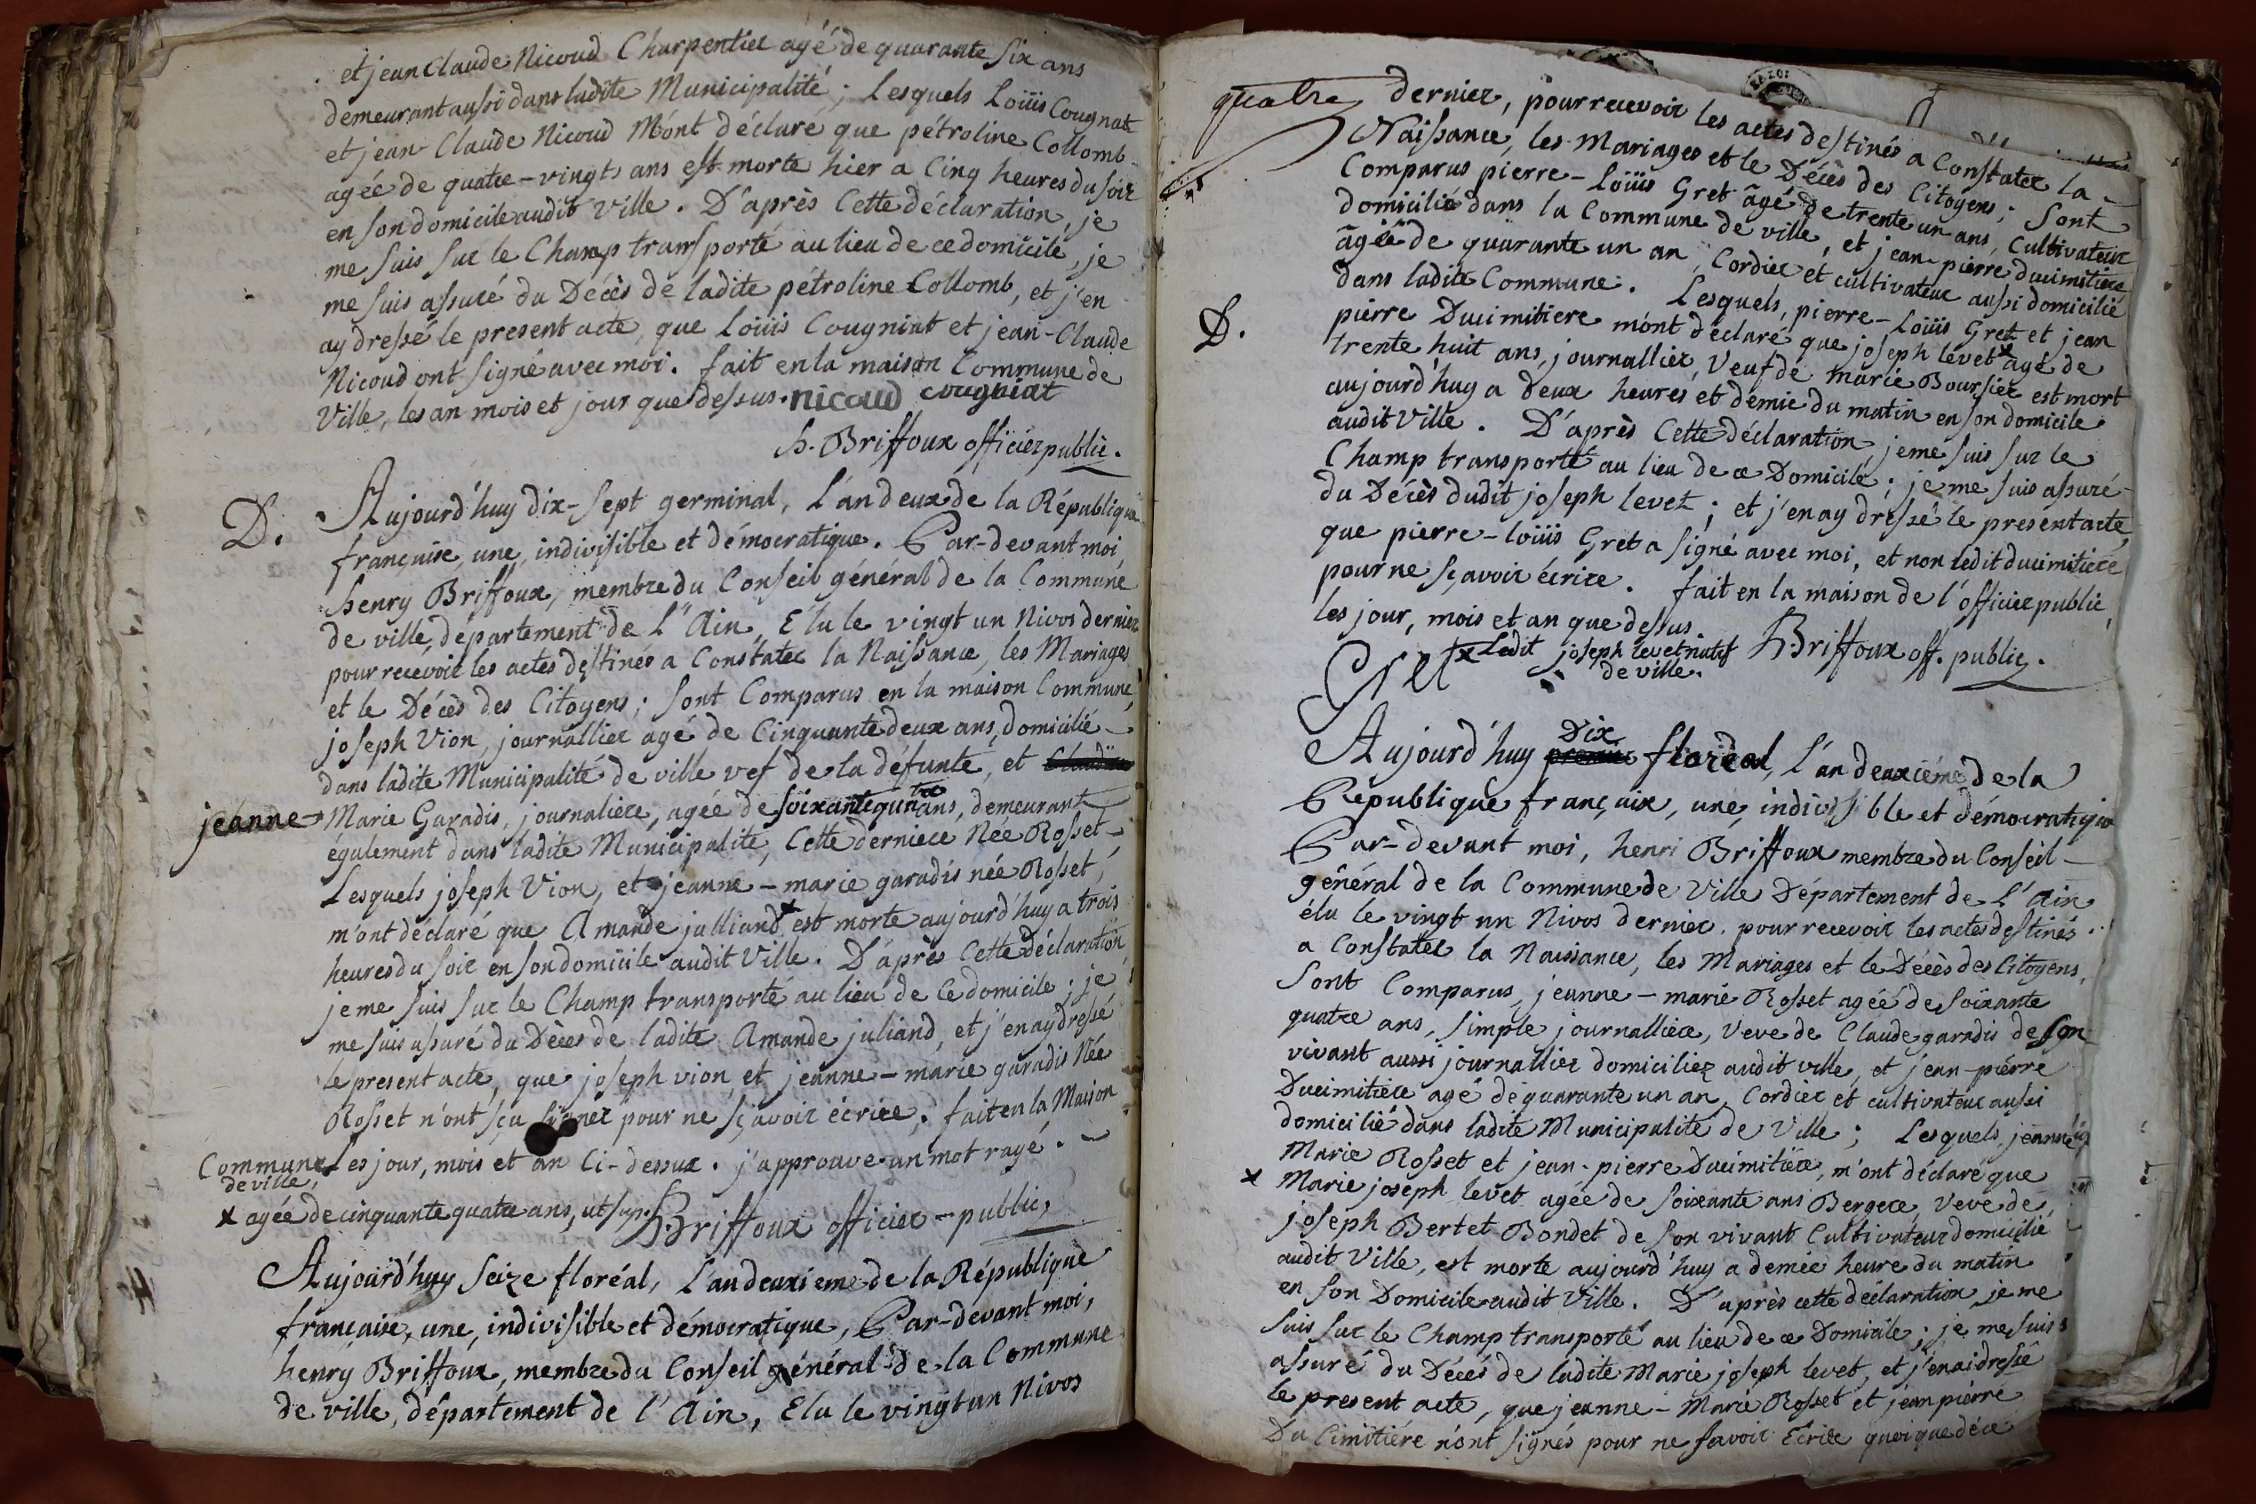 et jean Claude Nicoud Charpentier agé de quarante six ans
demeurant aussi dans ladite Municipalité ; Lesquels Loüis Cougnat
et jean Claude Nicoud M'ont déclaré que pétroline Collomb
agée de quatre-vingts ans est morte hier a Cinq heures du soir
en son domicile audit Ville . D'après Cette déclaration, je
me suis sur le Champ transporté au lieu de ce domicile, je
me suis assuré du Décès de ladite pétroline Collomb, et j'en
ay dressé le present acte, que Loüis Cougniat et jean-Claude
Nicoud ont signé avec moi . fait en la maison Commune de
Ville, les an mois et jour que dessus . nicoud cougniat
h. Briffoux officier public .
D.
Aujourd'huy dix-sept germinal, L'an deux de la République
française, une, indivisible et démocratique. Par-devant moi,
henry Briffoux, membre du Conseil géneral de la Commune
de ville, département de L'Ain, Elu le vingt un Nivos dernier
pour recevoir les actes destinés a Constater la Naissance, les Mariages
et le Décès des Citoyens ; Sont Comparus en la maison Commune,
joseph Vion, journallier agé de Cinquante deux ans, domicilié
dans ladite Municipalité de ville vef de la défunte, et
jeanne - Marie Garadis, journaliere, agée de soixante quatre ans, demeurant
également dans ladite Municipalité, Cette derniere Née Rosset
Lesquels joseph Vion, et jeanne - marie garadis née Rosset,
m'ont déclaré que Amande julliand x est morte aujourd'huy a trois
heures du soir en son domicile audit Ville . D'après Cette déclaration
je me suis sur le Champ transporté au lieu de ce domicile ; je
me suis assuré du Décès de ladite Amande juliand, et j'en ay dressé
le present acte, que joseph vion et jeanne - marie garadis Née
Rosset n'ont sçu signer pour ne sçavoir écrire . fait en la Maison
Commune de ville, Les jour, mois et an Ci-dessux . j'approuve un mot rayé .
x agée de cinquante quatre ans, ut sup. h. Briffoux officier - public,
Aujourd'huy seize floréal, L'an deuxieme de la République
française, une, indivisible et démocratique, Par-devant moi,
henry Briffoux, membre du Conseil général de la Commune
de ville, département de l'Ain, Elu le vingt un Nivos
quatre dernier, pour recevoir les actes destinés a Constater la
Naissance, les Mariages et le Décès des Citoyens ; Sont
Comparus pierre - Loüis Gret âgé de trente un ans, Cultivateur
domicilié dans la Commune de ville, et jean-pierre ducimitiere
âgéé de quarante un an, Cordier et cultivateur aussi domicilié
dans ladite Commune . Lesquels, pierre - Loüis Gret et jean
D.
pierre Ducimitiere m'ont déclaré que joseph levet x agé de
trente huit ans, journallier, Veuf de marie Boursier est mort
aujourd'huy a deux heures et demie du matin en son domicile
audit Ville . D'après Cette déclaration, je me suis sur le
Champ transporté au lieu de ce Domicile ; je me suis assuré
du Décès dudit joseph levet ; et j'en ay dressé le present acte,
que pierre - loüis Gret a signé avec moi, et non ledit ducimitiere
pour ne sçavoir écrire . fait en la maison de l'officier public,
les jour, mois et an que dessus
Gret x Ledit joseph levet natif de ville . h. Briffoux off. public .
Aujourd'huy Dix floréal, L'an deuxiéme de la
République française, une, indivisible et démocratique
Par-devant moi, henri Briffoux membre du Conseil
général de la Commune de Ville Département de l'Ain
élu le vingt un Nivos dernier, pour recevoir les actes destinés
a Constater la Naissance, les Mariages et le Décès des Citoyens,
Sont Comparus, jeanne - marie Rosset agéé de soixante
quatre ans, simple journalliere, Veve de Claude garadis de son
vivant aussi journallier domiciliez audit ville, et jean-piérre
Ducimitiere agé de quarante un an, Cordier et cultivateur aussi
domicilié dans ladite Municipalité de Ville ; Lesquels, jeanne
Marie Rosset et jean-pierre Ducimitiére, m'ont déclaré que
x Marie joseph levet agée de soixante ans Bergere, Veve de
joseph Bertet Bondet de son vivant Cultivateur domicilié
audit Ville, est morte aujourd'huy a demie heure du matin
en son Domicile audit Ville . D'après cette déclaration je me
suis sur le Champ transporté au lieu de ce Domicile ; je me suis
assuré du Décés de ladite Marie joseph levet, et j'en ai dressé
le present acte, que jeanne - Marie Rosset et jean piérre
Du Cimitiére n'ont signés pour ne savoir Ecrire quoique